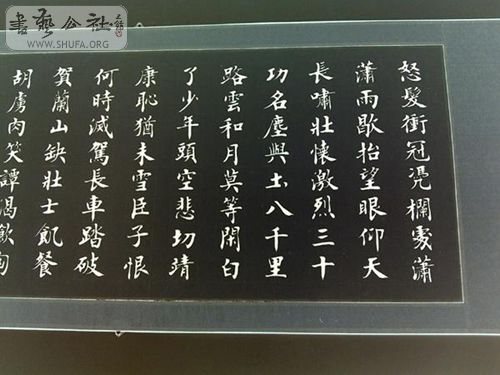 書藝公社
WWW.SHUFA.ORG
怒髮衝冠凴欄處瀟
瀟雨歇抬望眼仰天
長嘯壯懷激烈三十
功名塵與土八千里
路雲和月莫等閑白
了少年頭空悲切靖
康恥猶未雪臣子恨
何時滅駕長車踏破
賀蘭山缺壯士飢餐
胡虜肉笑譚渴飲匈